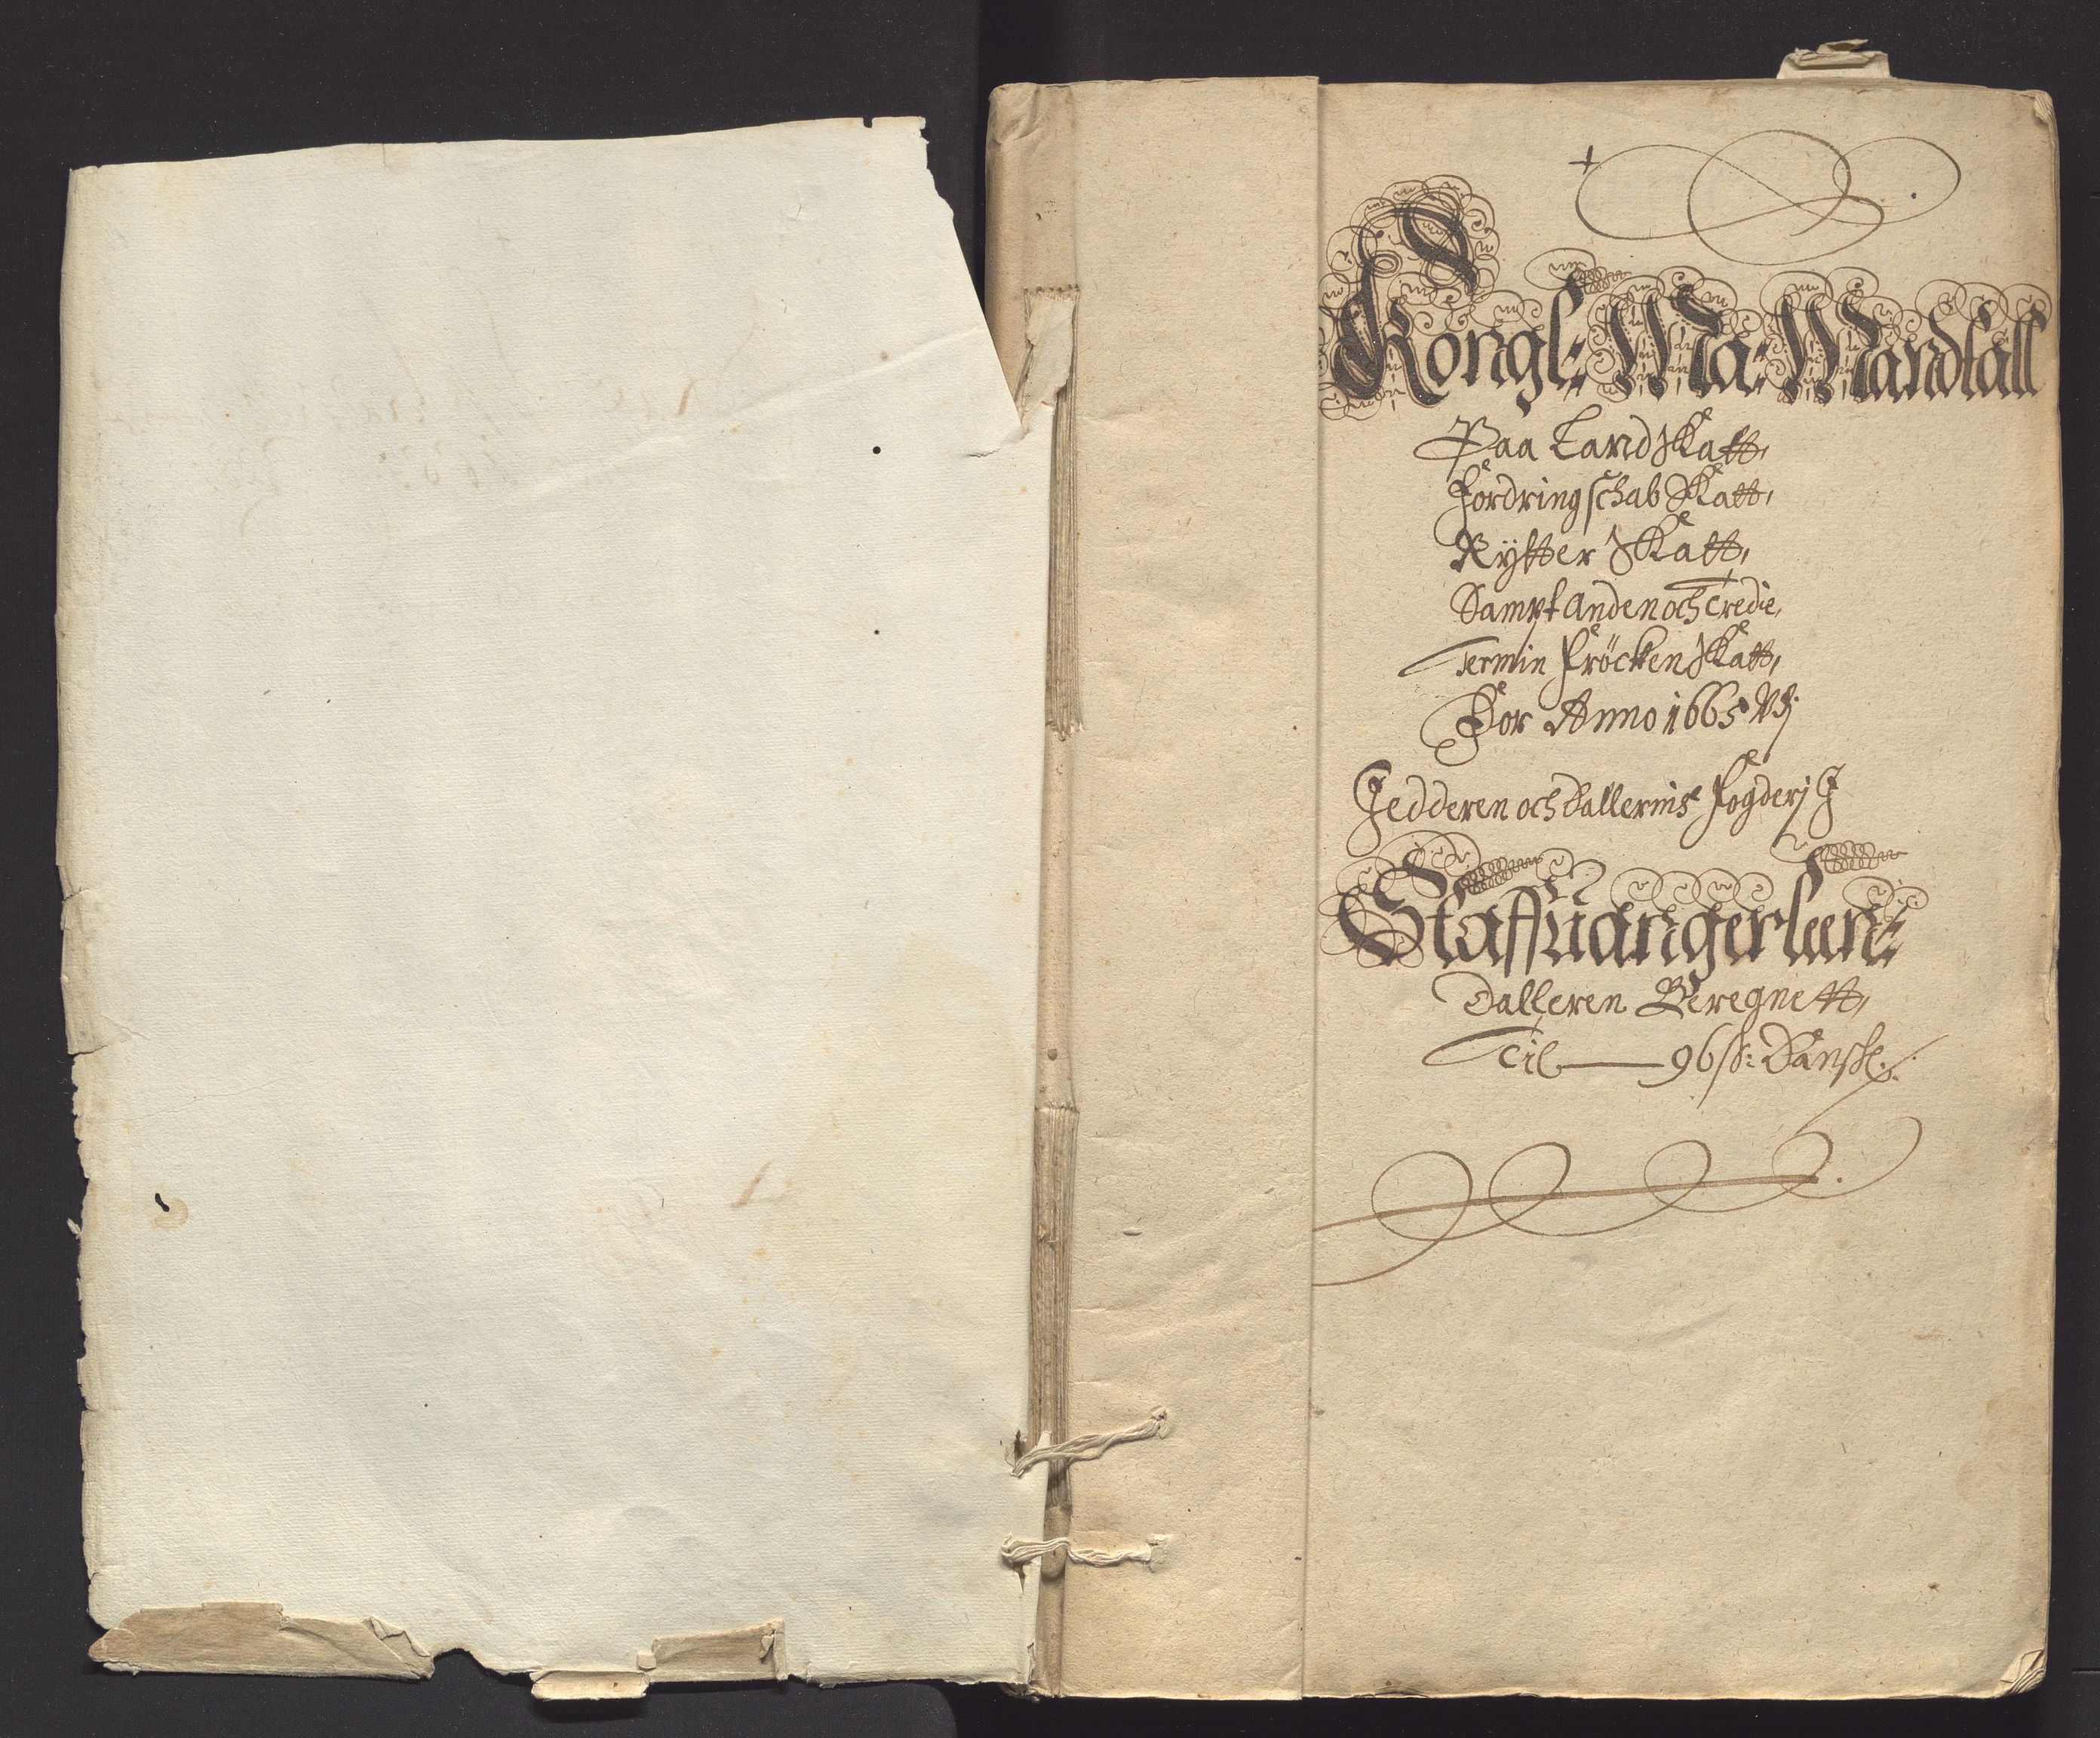 Kongl: Ma: Mandtall
Paa Landskatt,
Fordringschab Skatt,
Rÿtter Skatt,
Sampt Anden och Tredie,
Termin Fröcken Skatt,
For Anno 1665 Vdj
Jedderen och Dallernis Fogderj J
Staffuangerleen:
Dalleren Beregnett,
Til 96 sk: Danske.